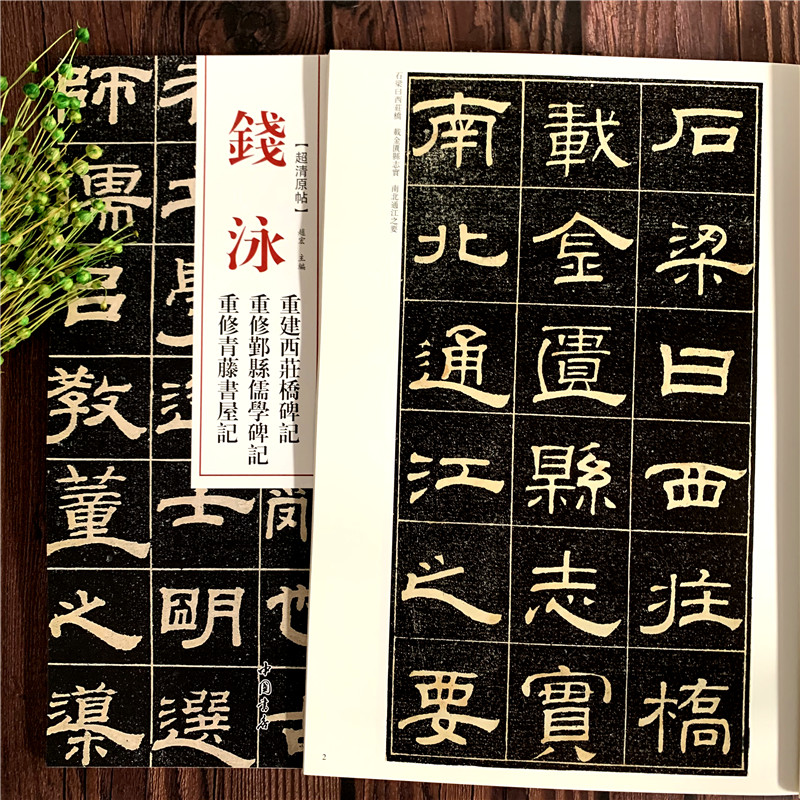 錢泳
【超清原帖】
趙宏 主編
重建西莊橋碑記
重修鄞縣儒學碑記
重修青藤書屋記
中國書店
師儒呂教董之渠
士明選
世
石梁曰西莊橋 載全匱縣志實 南北通江之要
石梁曰西莊橋
載金匱縣志實
南北通江之要
2